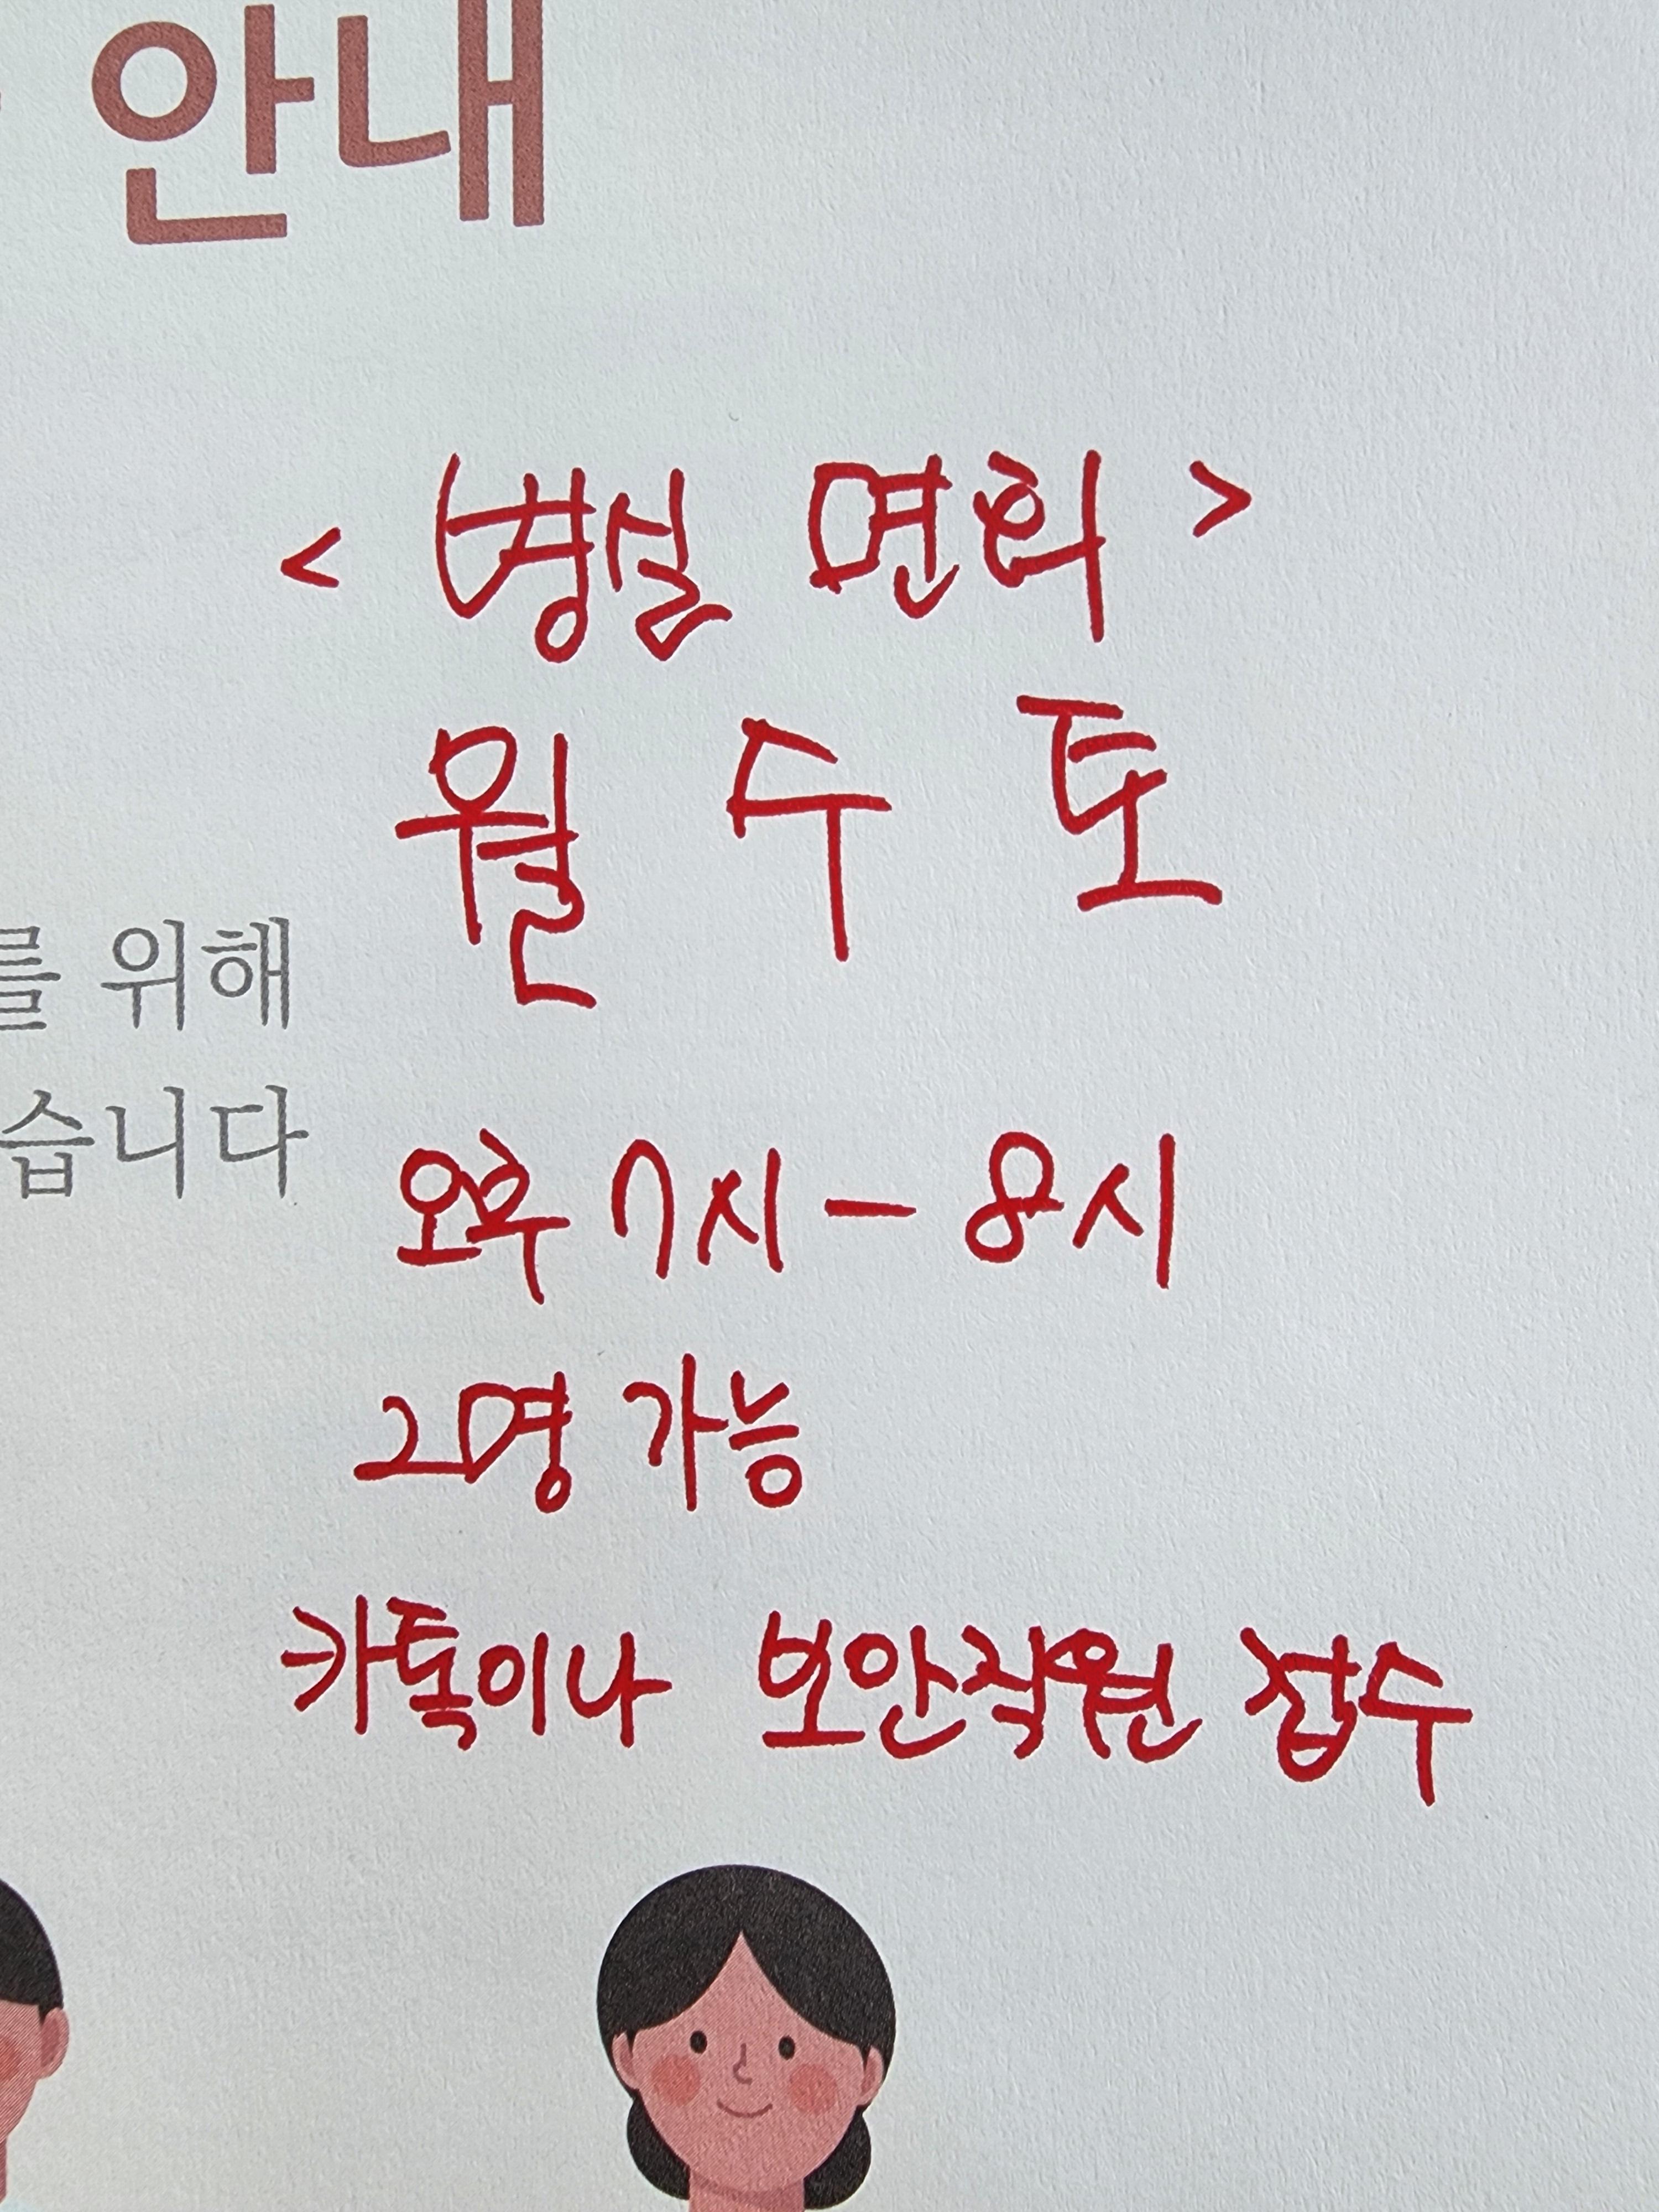 안내
< 병실 면회 >
월 수 토
를 위해
습니다
오후 7시 - 8시
2명 가능
카톡이나 보안직원 접수